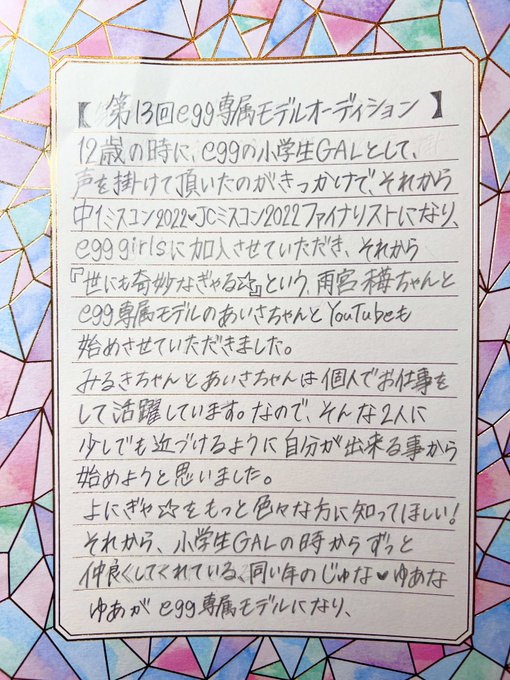 【 第13回egg専属モデルオーディション 】
12歳の時に、eggの小学生GALとして、
声を掛けて頂いたのがきっかけで、それから
中1ミスコン2022♥JCミスコン2022ファイナリストになり、
egg girlsに加入させていただき、それから
『世にも奇妙なぎゃる☆』という、雨宮稀ちゃんと
egg専属モデルのあいさちゃんとYouTubeも
始めさせていただきました。
みるきちゃんとあいさちゃんは個人でお仕事を
して活躍しています。なので、そんな2人に
少しでも近づけるように自分が出来る事から
始めようと思いました。
よにぎゃ☆をもっと色々な方に知ってほしい!
それから、小学生GALの時からずっと
仲良くしてくれている、同い年のじゅな♥ゆあな
ゆあがegg専属モデルになり、